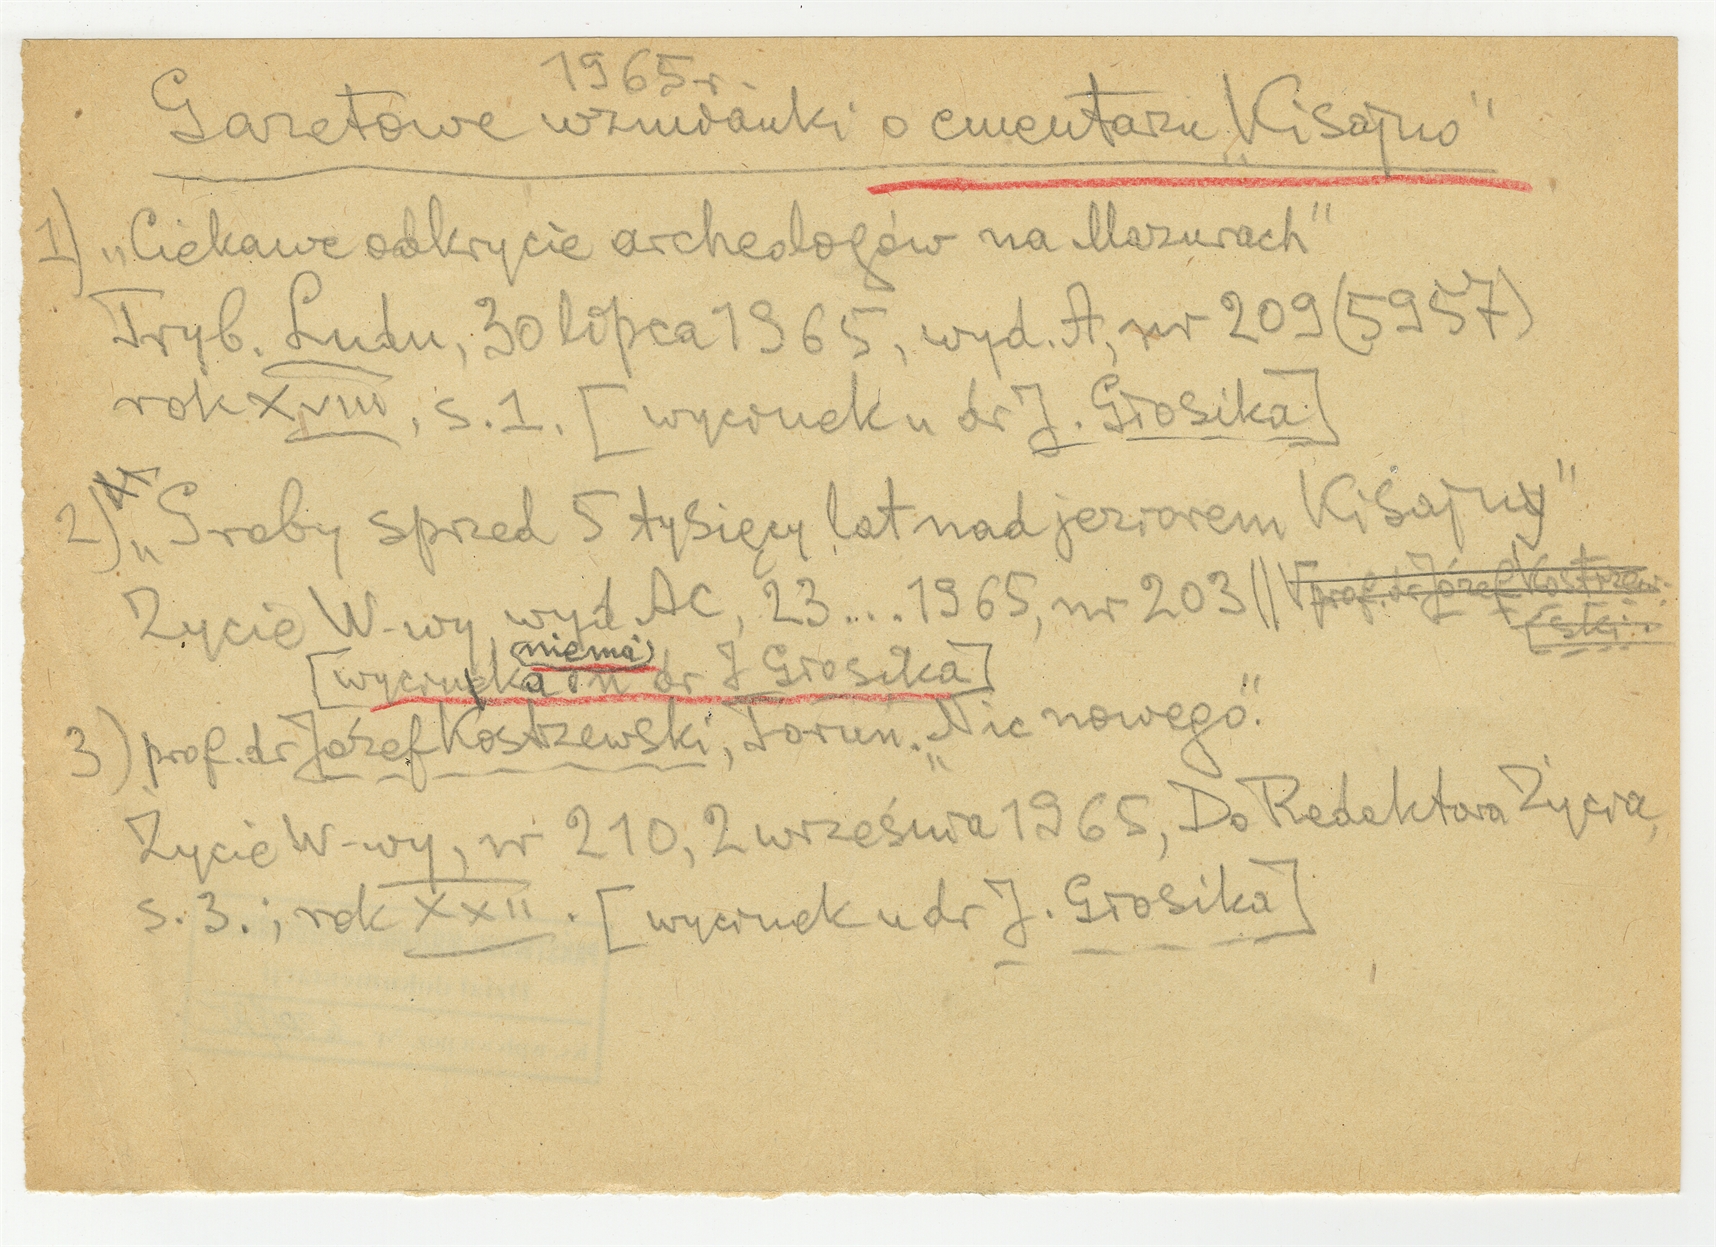 1965 r.
Gazetowe wzmianki o cmentarzu „Kisajno"
1) „Ciekawe odkrycie archeologów na Mazurach"
Tryb. Ludu, 30 lipca 1965, wyd. A, nr 209 (5957)
rok XVIII, s. 1. [wycinek u dr J. Głosika]
2) „Groby sprzed 5 tysięcy lat nad jeziorem Kisajny"
Życie W-wy, wyd AC, 23...1965, nr 203 || prof. dr Józef Kostrzew-
ski
(niema)
[wycinka u dr J Głosika]
3) prof. dr Józef Kostrzewski, Toruń. „Nic nowego".
Życie W-wy, nr 210, 2 września 1965, Do Redaktora Życia,
s. 3. ; rok XXII . [wycinek u dr J. Głosika]